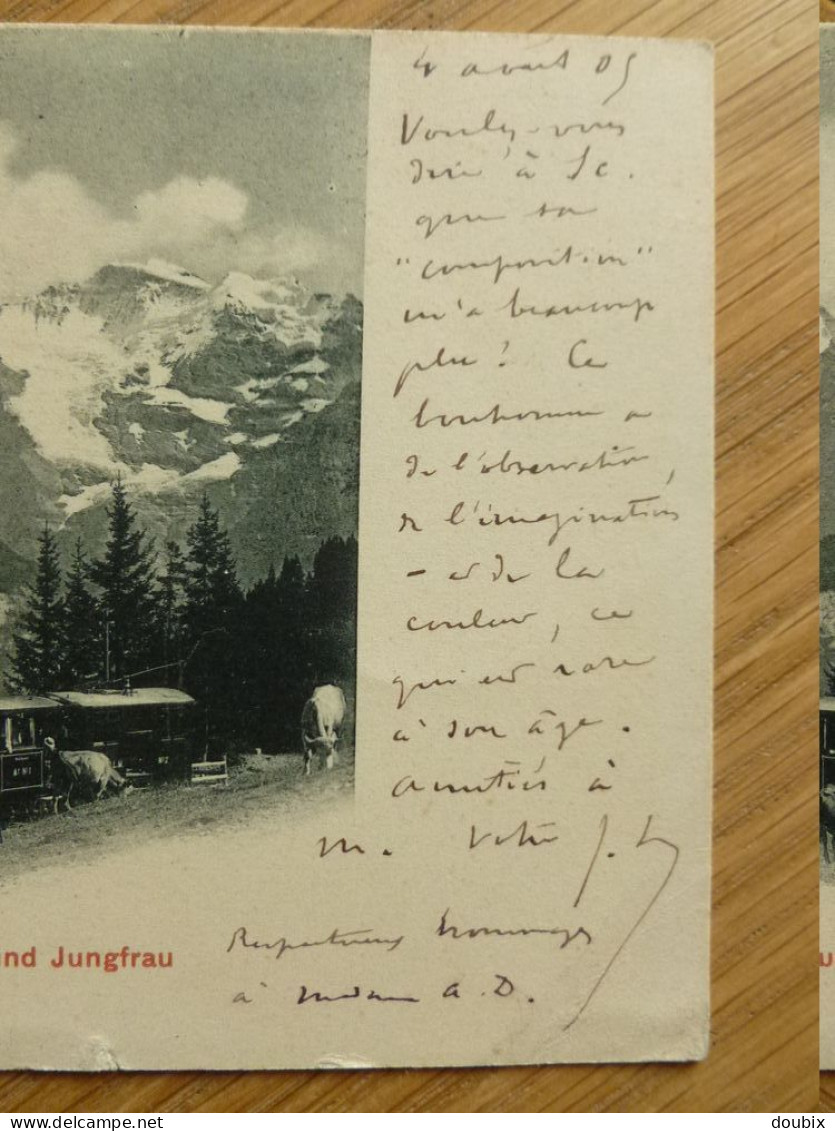 4 août 05
Voulez-vous
dire à Jc.
que sa
"composition"
m'a beaucoup
plu! Ce
bonhomme a
de l'observation,
de l'imagination
- et de la
couleur, ce
qui est rare
à son âge.
Amitiés à
M. Votre J. L
Respectueux hommages
à Madame A. D.
und Jungfrau
doubix Delcampe.net